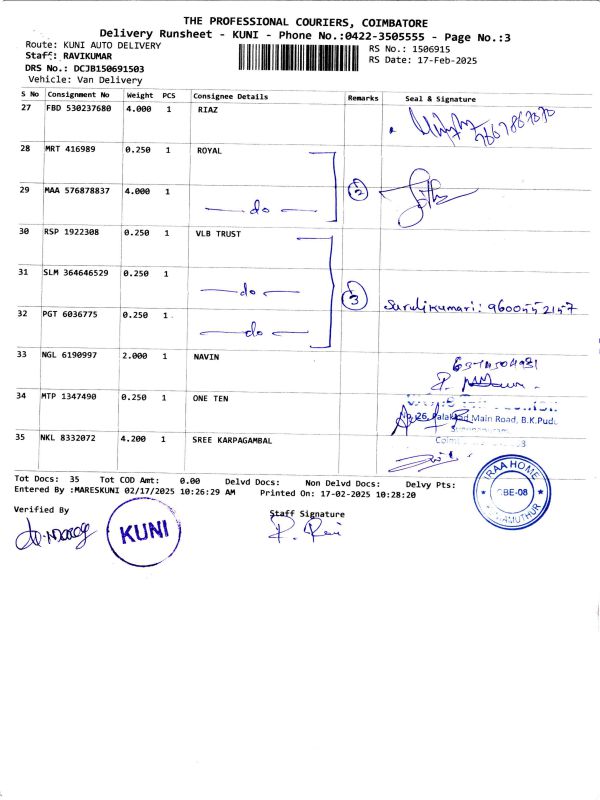 THE PROFESSIONAL COURIERS, COIMBATORE
Delivery Runsheet - KUNI - Phone No.:0422-3505555 - Page No.:3
Route: KUNI AUTO DELIVERY
RS No.: 1506915
Staff: RAVIKUMAR
RS Date: 17-Feb-2025
DRS No.: DCJB150691503
Vehicle: Van Delivery
S No Consignment No Weight PCS Consignee Details Remarks Seal & Signature
27 FBD 530237680 4.000 1 RIAZ
28 MRT 416989 0.250 1 ROYAL
29 MAA 576878837 4.000 1 do 2
30 RSP 1922308 0.250 1 VLB TRUST
31 SLM 364646529 0.250 1 do 3
32 PGT 6036775 0.250 1 do Surulikumari: 9600552157
33 NGL 6190997 2.000 1 NAVIN
34 MTP 1347490 0.250 1 ONE TEN
Main Road, B.K.Pudu
35 NKL 8332072 4.200 1 SREE KARPAGAMBAL
Tot Docs: 35 Tot COD Amt: 0.00 Delvd Docs: Non Delvd Docs: Delvy Pts:
Entered By :MARESKUNI 02/17/2025 10:26:29 AM Printed On: 17-02-2025 10:28:20
IRAA HOME
CBE-08
Verified By Staff Signature
KUNI